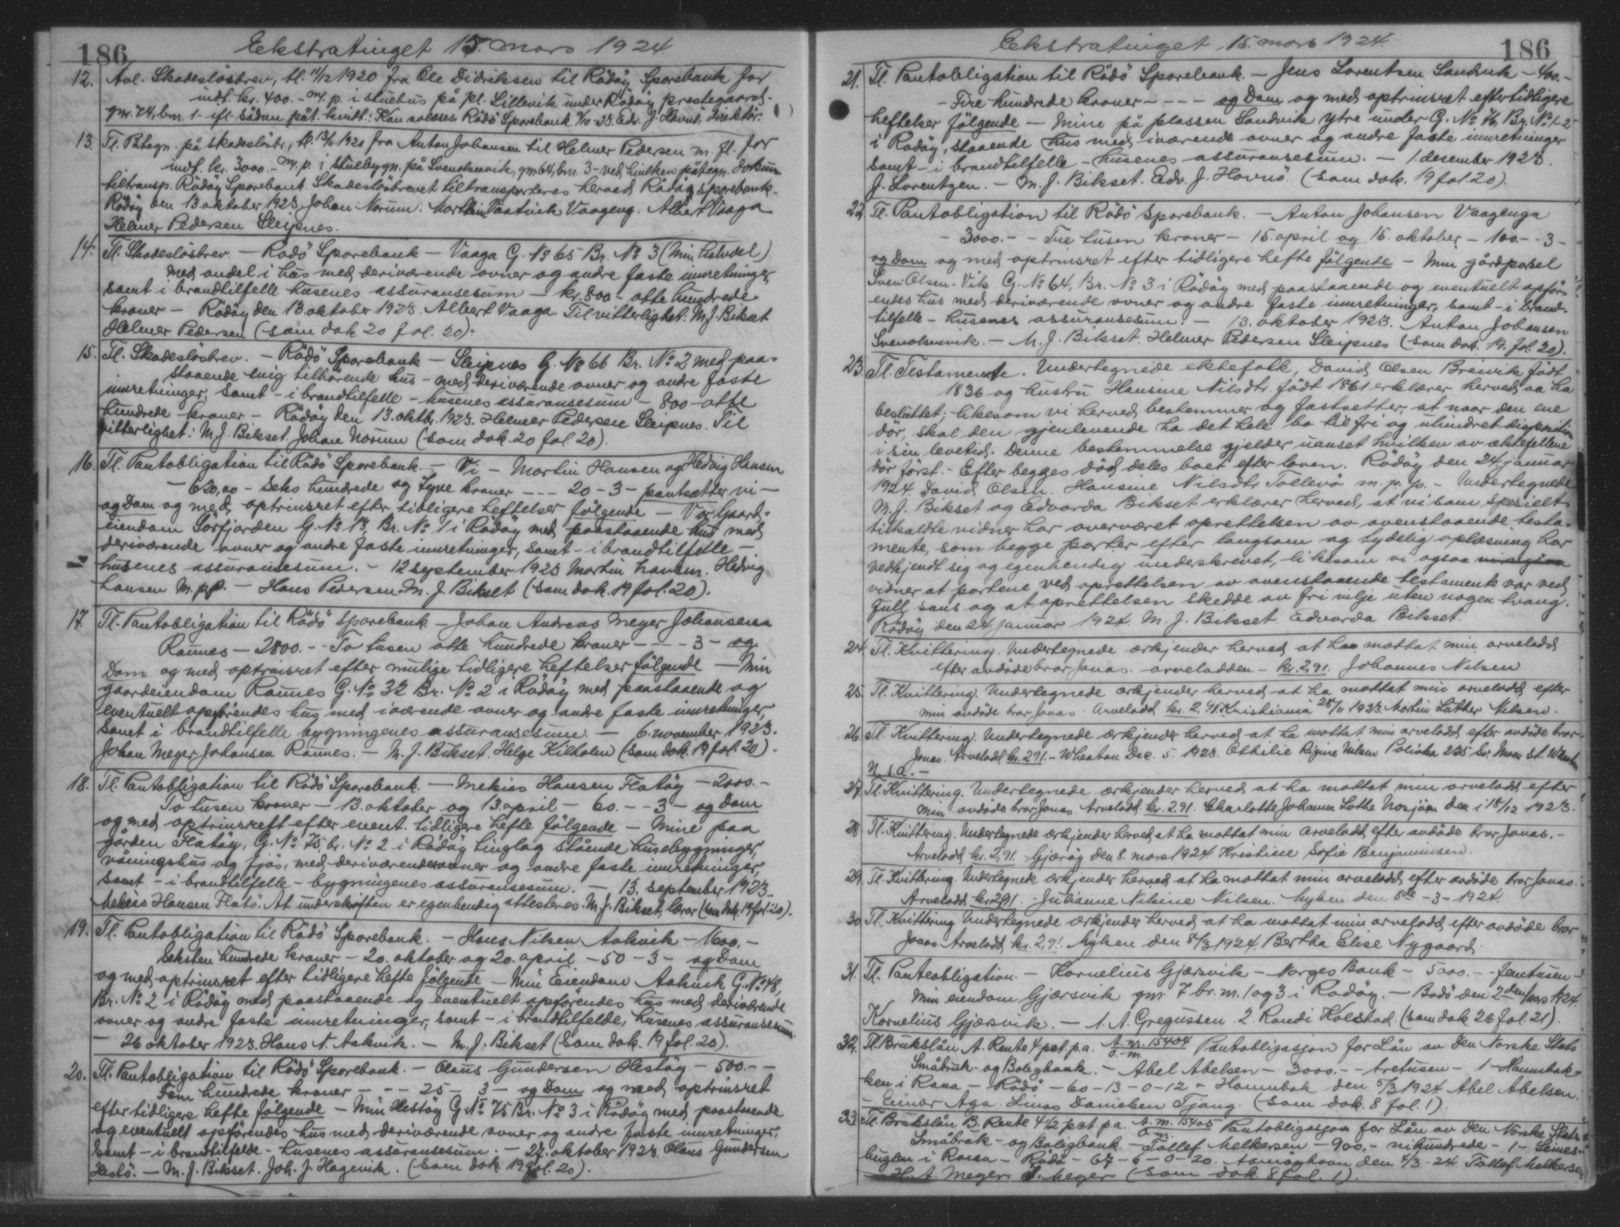 186 Ekstratinget 15 mars 1924
12. Avl. Skadesløsbrev, tl. 11/12 1920 fra Ole Didriksen til Rödöy Sporebank for
indt. kr. 400.- m. p. i stuehus på pl. Lillevik under Rödöy prestegaard
gm. 74, bm. 1. efl. sådan påt. kvitt: Kan avleses Rödö Sporebank 4/10 23. Edv. J. Havnö, Direktör.
13. Tl. Påtegn. på skadeslösbr. tl. 13/4 1920 fra Anton Johansen til Helmer Pedersen m. fl. for
indt. kr. 3000.- m. p. i bygn. på Svenolsenvik, gm 64, bm. 3 - ved hvilken påtegn. 
tiltransp. Rödöy Sporebank. Skadeslösbrevet tiltransporteres herved Rödöy Sporebank.
Rödöy den 13 oktober 1923. Johan Norum. Vaageng. Albert Vaaga
Helmer Pedersen Sleipnes.
14. Tl. Skadeslösbrev. - Rödö Sporebank - Vaaga G. No 65 Br. No 3 (Min halvdel)
med andel i hus med deriværende ovner og andre faste inretninger,
samt i brandtilfelle husenes assuransesum - kr. 800 - otte hundrede
kroner - Rödöy den 13 oktober 1923. Albert Vaaga. Til vitterlighet: M. J. Bikset
Helmer Pedersen (sam dok 20 fol. 20).
15. Tl. Skadeslösbrev. - Rödö Sporebank - Sleipnes G. No 66 Br. No 2 med paa-
staaende mig tilhörende hus - med deriværende ovner og andre faste
inretninger, samt - i brandtilfelle - husenes assuransesum - 800 - otte
hundrede kroner - Rödöy den 13. oktb. 1923. Helmer Pedersen Sleipnes. Til
vitterlighet: M. J. Bikset. Johan Norum (sam dok. 20 fol 20).
16. Tl. Pantobligation til Rödö Sporebank - Vi - Martin Hansen og Hedvig Hansen
- 620,00 - Seks hundrede og tyve kroner - - - 20 - 3 - pantsætter vi -
og Dam og med, optrinsret efter tidligere heftelser følgende - Vor Gaard-
eiendom Sörfjorden G. No 13 Br. No 1 i Rödöy med paastaaende hus med
deriværende ovner og andre faste inretninger, samt - i brandtilfelle -
husenes assuransesum. - 12 september 1923 Martin Hansen. Hedvig
Hansen m.p.p. - Hans Pedersen. M. J. Bikset (Sam dok. 19 fol. 20).
17. Tl. Pantobligation til Rödö Sporebank - Johan Andreas Meyer Johansen
Raunes - 2800.- - To tusen otte hundrede kroner - - - 3 - og
Dam og med optrinsret efter mulige tidligere heftelser følgende - Min
gaardeiendom Raunes G. No 32 Br. No 2 i Rödöy med paastaaende og
eventuelt opförendes hus med iværende ovner og andre faste inretninger,
samt i brandtilfelle bygningenes assuransesum - 6. november 1923.
Johan Meyer Johansen Raunes. - M. J. Bikset. Helge Kilholm (Sam dok. 19 fol 20).
18. Tl. Pantobligation til Rödö Sporebank. - Mekias Hansen Flatöy - 2000.-
To tusen kroner - 13. oktober og 13 april - 60 - - 3 - og Dam
og med optrinsrett efter event. tidligere hefte følgende - Mine paa
gården Flatöy, G. No 75, br. No 2 i Rödöy tinglag stående husebygninger,
våningshus og fjös, med deriværende ovner og andre faste inretninger,
samt - i brandtilfelle - bygningenes assuransesum. - 13. september 1923
Mekias Hansen Flatö. At underskriften er egenhendig attesteres M. J. Bikset, lærar (sam dok. 19 fol 20).
19. Tl. Pantobligation til Rödö Sporebank. - Hans Nilsen Aakvik - 1600.-
Seksten hundrede kroner - 20. oktober og 20. april - 50 - 3 - og Dam
og med optrinsret efter tidligere hefte følgende - Min Eiendom Aakvik G. No 48,
Br. No 2 i Rödöy med paastaaende og eventuelt opförendes hus med deriværende
ovner og andre faste inretninger, samt - i brandtilfelde, husenes assuransesum.
- 26 oktober 1923. Hans N. Aakvik. - M. J. Bikset (Sam dok. 19 fol. 20).
20. Tl. Pantobligation til Rödö Sporebank. - Olaus Gundersen Hestöy - 500.- -
Fem hundrede kroner - - - 25 - 3 - og Dam og med optrinsret
efter tidligere hefte følgende - Min Hestöy G. No 75 Br. No 3 i Rödöy med paastaaende
og eventuelt opförendes hus med deriværende ovner og andre faste inretninger,
samt - i brandtilfelde - husenes assuransesum. - 27. oktober 1923. Olaus Gundersen
Hestö. - M. J. Bikset. Joh. J. Hagevik. (Sam dok. 19 fol. 20).
Ekstratinget 15 mars 1924 186
21. Tl. Pantobligation til Rödö Sporebank - Jens Lorentsen Sandvik - 400.-
- Fire hundrede kroner - - - - og Dam og med optrinsret efter tidligere
heftelser følgende - Mine på plassen Sandvik ytre under G. No 76 Br. No 1-2
i Rödöy, staaende hus med iværende ovner og andre faste inretninger
samt - i brandtilfelle - husenes assuransesum. - 1 desember 1923.
J. Lorentzen. - M. J. Bikset. Edv. J. Havnö. (Sam dok. 19 fol. 20).
22. Tl. Pantobligation til Rödö Sporebank. - Anton Johansen Vaagenga
- 3000.- - Tre tusen kroner - 15. april og 15. oktober - 100.- - 3 -
og Dam og med optrinsret efter tidligere hefte følgende - Min gårdparsel
Sven Olsen-Vik G. No 64, Br. No 3 i Rödöy med paastaaende og eventuelt opför-
endes hus med deriværende ovner og andre faste inretninger, samt - i brand-
tilfelle - husenes assuransesum. - 13. oktober 1923. Anton Johansen
Svenolsenvik. - M. J. Bikset. Helmer Pedersen Sleipnes (Sam dok. 19. fol 20).
23. Tl. Testamente. Undertegnede ektefolk, David Olsen Breivik født
1836 og hustru Hansine Nilsdtr. født 1861 erklærer herved aa ha
besluttet, likesom vi herved bestemmer og fastsetter, at naar den ene
dör, skal den gjenlevende ha det hele bo til fri og uhindret disposition
i sin levetid. Denne bestemmelse gjelder uanset hvilken av ektefellene
dör först. - Efter begges död deles boet efter loven. Rödöy den 24 januar
1924. David Olsen. Hansine Nilsdtr. Sollevö m. p. p. - Undertegnede
M. J. Bikset og Edvarda Bikset erklærer herved, at vi som spesielt
tilkaldte vidner har overværet oprettelsen av ovenstaaende testa-
mente, som begge parter efter langsom og tydelig oplæsning har
vedkjendt seg og egenhendig underskrevet, likesom vi ogsaa
vidner at partene ved oprettelsen av ovenstaaende testamente var ved
full sans og at oprettelsen skedde av fri vilje uten nogen tvang.
Rödöy den 24 januar 1924. M. J. Bikset. Edvarda Bikset.
24. Tl. Kvittering. Undertegnede erkjender herved at ha mottat min arvelodd
efter avdöde bror Jonas. arvelodden - kr. 2,91. Johannes Nilsen
25. Tl. Kvittering. Undertegnede erkjender herved at ha mottat min arvelodd efter
min avdöde bror Jonas. Arvelodd kr. 2,91 Kristiania 28/11 1923. Martin Luther Nilsen.
26. Tl. Kvittering. Undertegnede erkjender herved at ha mottat min arvelodd efter avdöde bror
Jonas. Arvelodd kr. 2,91. - Wheaton Dec. 5. 1923. Othilie Regine Nilsen 225 So. Main St. Wheaton
U.S.A. -
27. Tl. Kvittering. Undertegnede erkjender herved at ha mottat min arvelodd efter
min avdöde bror Jonas. Arvelodd kr. 2,91. Charlotte Johanna Lotte den i 18/12 1923.
28. Tl. Kvittering. Undertegnede erkjender herved at ha mottat min arvelodd efter avdöde bror Jonas. -
Arvelodd kr. 2,91. Gjeröy den 8. mars 1924 Kristine Sofie Benjaminsen.
29. Tl. Kvittering. Undertegnede erkjender herved at ha mottat min arvelodd efter avdöde bror Jonas.
Arvelodd kr. 2,91. - Julianne Nilsine Nilsen. Myken den 8de - 3 - 1924.
30. Tl. Kvittering. Undertegnede erkjender herved at ha mottat min arvelodd efter avdöde bror
Jonas. Arvelodd kr. 2,91. Myken den 8/3 1924 Bertha Elise Nygaard.
31. Tl. Panteobligation. - Kornelius Gjærsvik - Norges Bank - 5000.- - femtusen -
Min eiendom Gjærsvik gm. 7 br. m. 1 og 3 i Rödöy. - Bodö den 2den mars 1924.
Kornelius Gjærsvik. - 1. A. Gregussen 2. Randi Holstad. (Sam dok 26 fol. 21).
32. Tl. Brukslån A. Rente 4 pct p.a. A. nr. 15404 Pantobligasjon for Lån av den Norske Stats
Småbruk- og Boligbank. - Abel Abelsen - 3000.- - tretusen - 1 - Hamnbak-
ken i Rana - Rödö - 60 - 13 - 0 - 12 - Hamnbak. den 5/3 1924 Abel Abelsen.
- Einar Aga Linas Danielsen Tjong (Sam dok. 8 fol. 1).
33. Tl. Brukslån B. Rente 4 1/2 pct p.a. A. nr. 15405 Pantobligasjon for Lån av den Norske Stats
Småbruk- og Boligbank - Tollef Melkersen - 900.- nihundrede - 1 -
i Rossa - Rödö - 67 - 6 - 0 - 20. den 4/3 - 24 Tollef Melkersen
H. A. Meyer. J. Meyer (Sam dok 8 fol. 1).